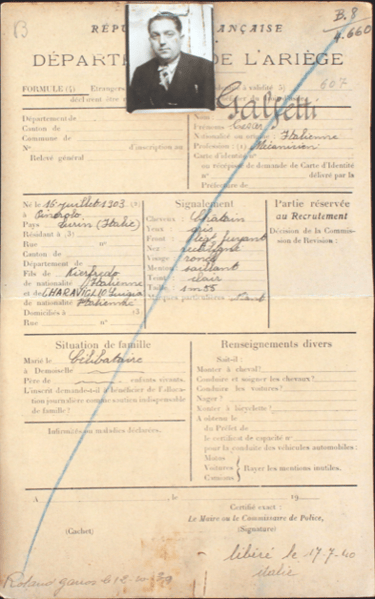 B
B.8
4.660
RÉPUBLIQUE FRANÇAISE
DÉPARTEMENT DE L'ARIÈGE
FORMULE (4) Étrangers 5)
607
Galfetti
Département de
Canton de
Commune de
N° d'inscription au
Relevé général
Prénoms
Nationalité Italienne
Profession : (2) Mécanicien
Carte d'identité n°
ou récépissé de demande de Carte d'Identité
n° délivré par la
Préfecture de
Né le 15 juillet 1903 (3)
à
Pays Turin (Italie)
Résidant à (3)
Rue n°
Canton de
Département de
Fils de
de nationalité Italienne
et de CHARAVIGLIO
de nationalité Italienne
Domiciliés à (3)
Rue n°
Signalement
Cheveux : Châtain
Yeux gris
Front : légt fuyant
Nez : rectiligne
Visage rond
Menton saillant
Teint clair
Taille 1m 55
Marques particulières
Partie réservée
au Recrutement
Décision de la Commission
de Revision :
Situation de famille
Marié le Célibataire
à Demoiselle
Père de enfants vivants.
L'inscrit demande-t-il à bénéficier de l'allocation
journalière comme soutien indispensable
de famille ?
Infirmités ou maladies déclarées.
Renseignements divers
Sait-il :
Monter à cheval ?
Conduire et soigner les chevaux ?
Conduire les voitures ?
Nager ?
Monter à bicyclette ?
A obtenu le
du Préfet de
le certificat de capacité n°
pour la conduite des véhicules automobiles :
Motos
Voitures Rayer les mentions inutiles.
Camions
A , le 19
Certifié exact :
Le Maire ou le Commissaire de Police,
(Cachet) (Signature)
libéré le 17-7-40
italie
Roland garros le 12-10-39